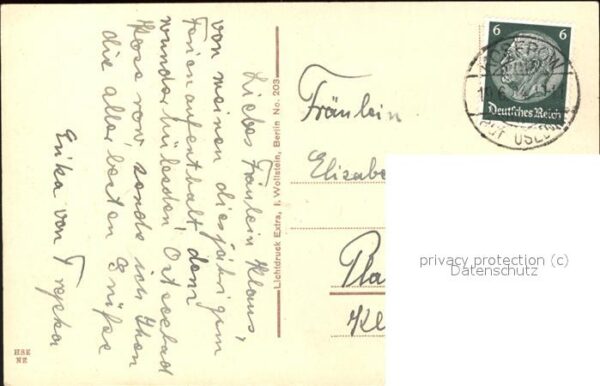 Liebes Fräulein Klaus,
von meinen diesjährigen
Ferienaufenthalt dem
wunderhübschen Ostseebad
Koserow, sende ich Ihnen
die allerbesten Grüße
Erika von
Lichtdruck Extra, I. Wollstein, Berlin No. 203
Fräulein
Elisabe
Pla
Kl
6 6
Deutsches Reich
KOSEROW
AUF USEDOM
privacy protection (c)
Datenschutz
HSK
NE